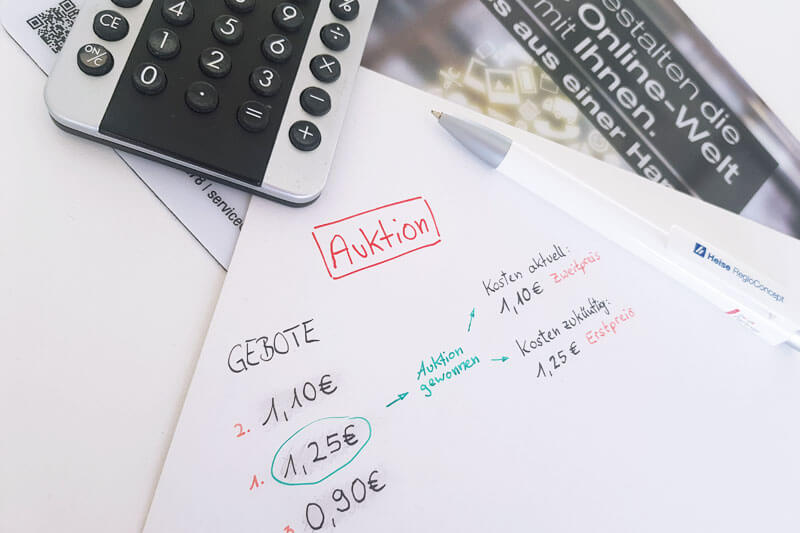 %
CE 4 5 6 ÷
ON/C 1 2 3 ×
0 · = −
+
9
estalten die
Online-Welt
mit Ihnen.
s aus einer Han
78 | service
Heise RegioConcept
Auktion
GEBOTE
2. 1,10€
1. 1,25€
3. 0,90€
Auktion
gewonnen
Kosten aktuell:
1,10€ Zweitpreis
Kosten zukünftig:
1,25€ Erstpreis